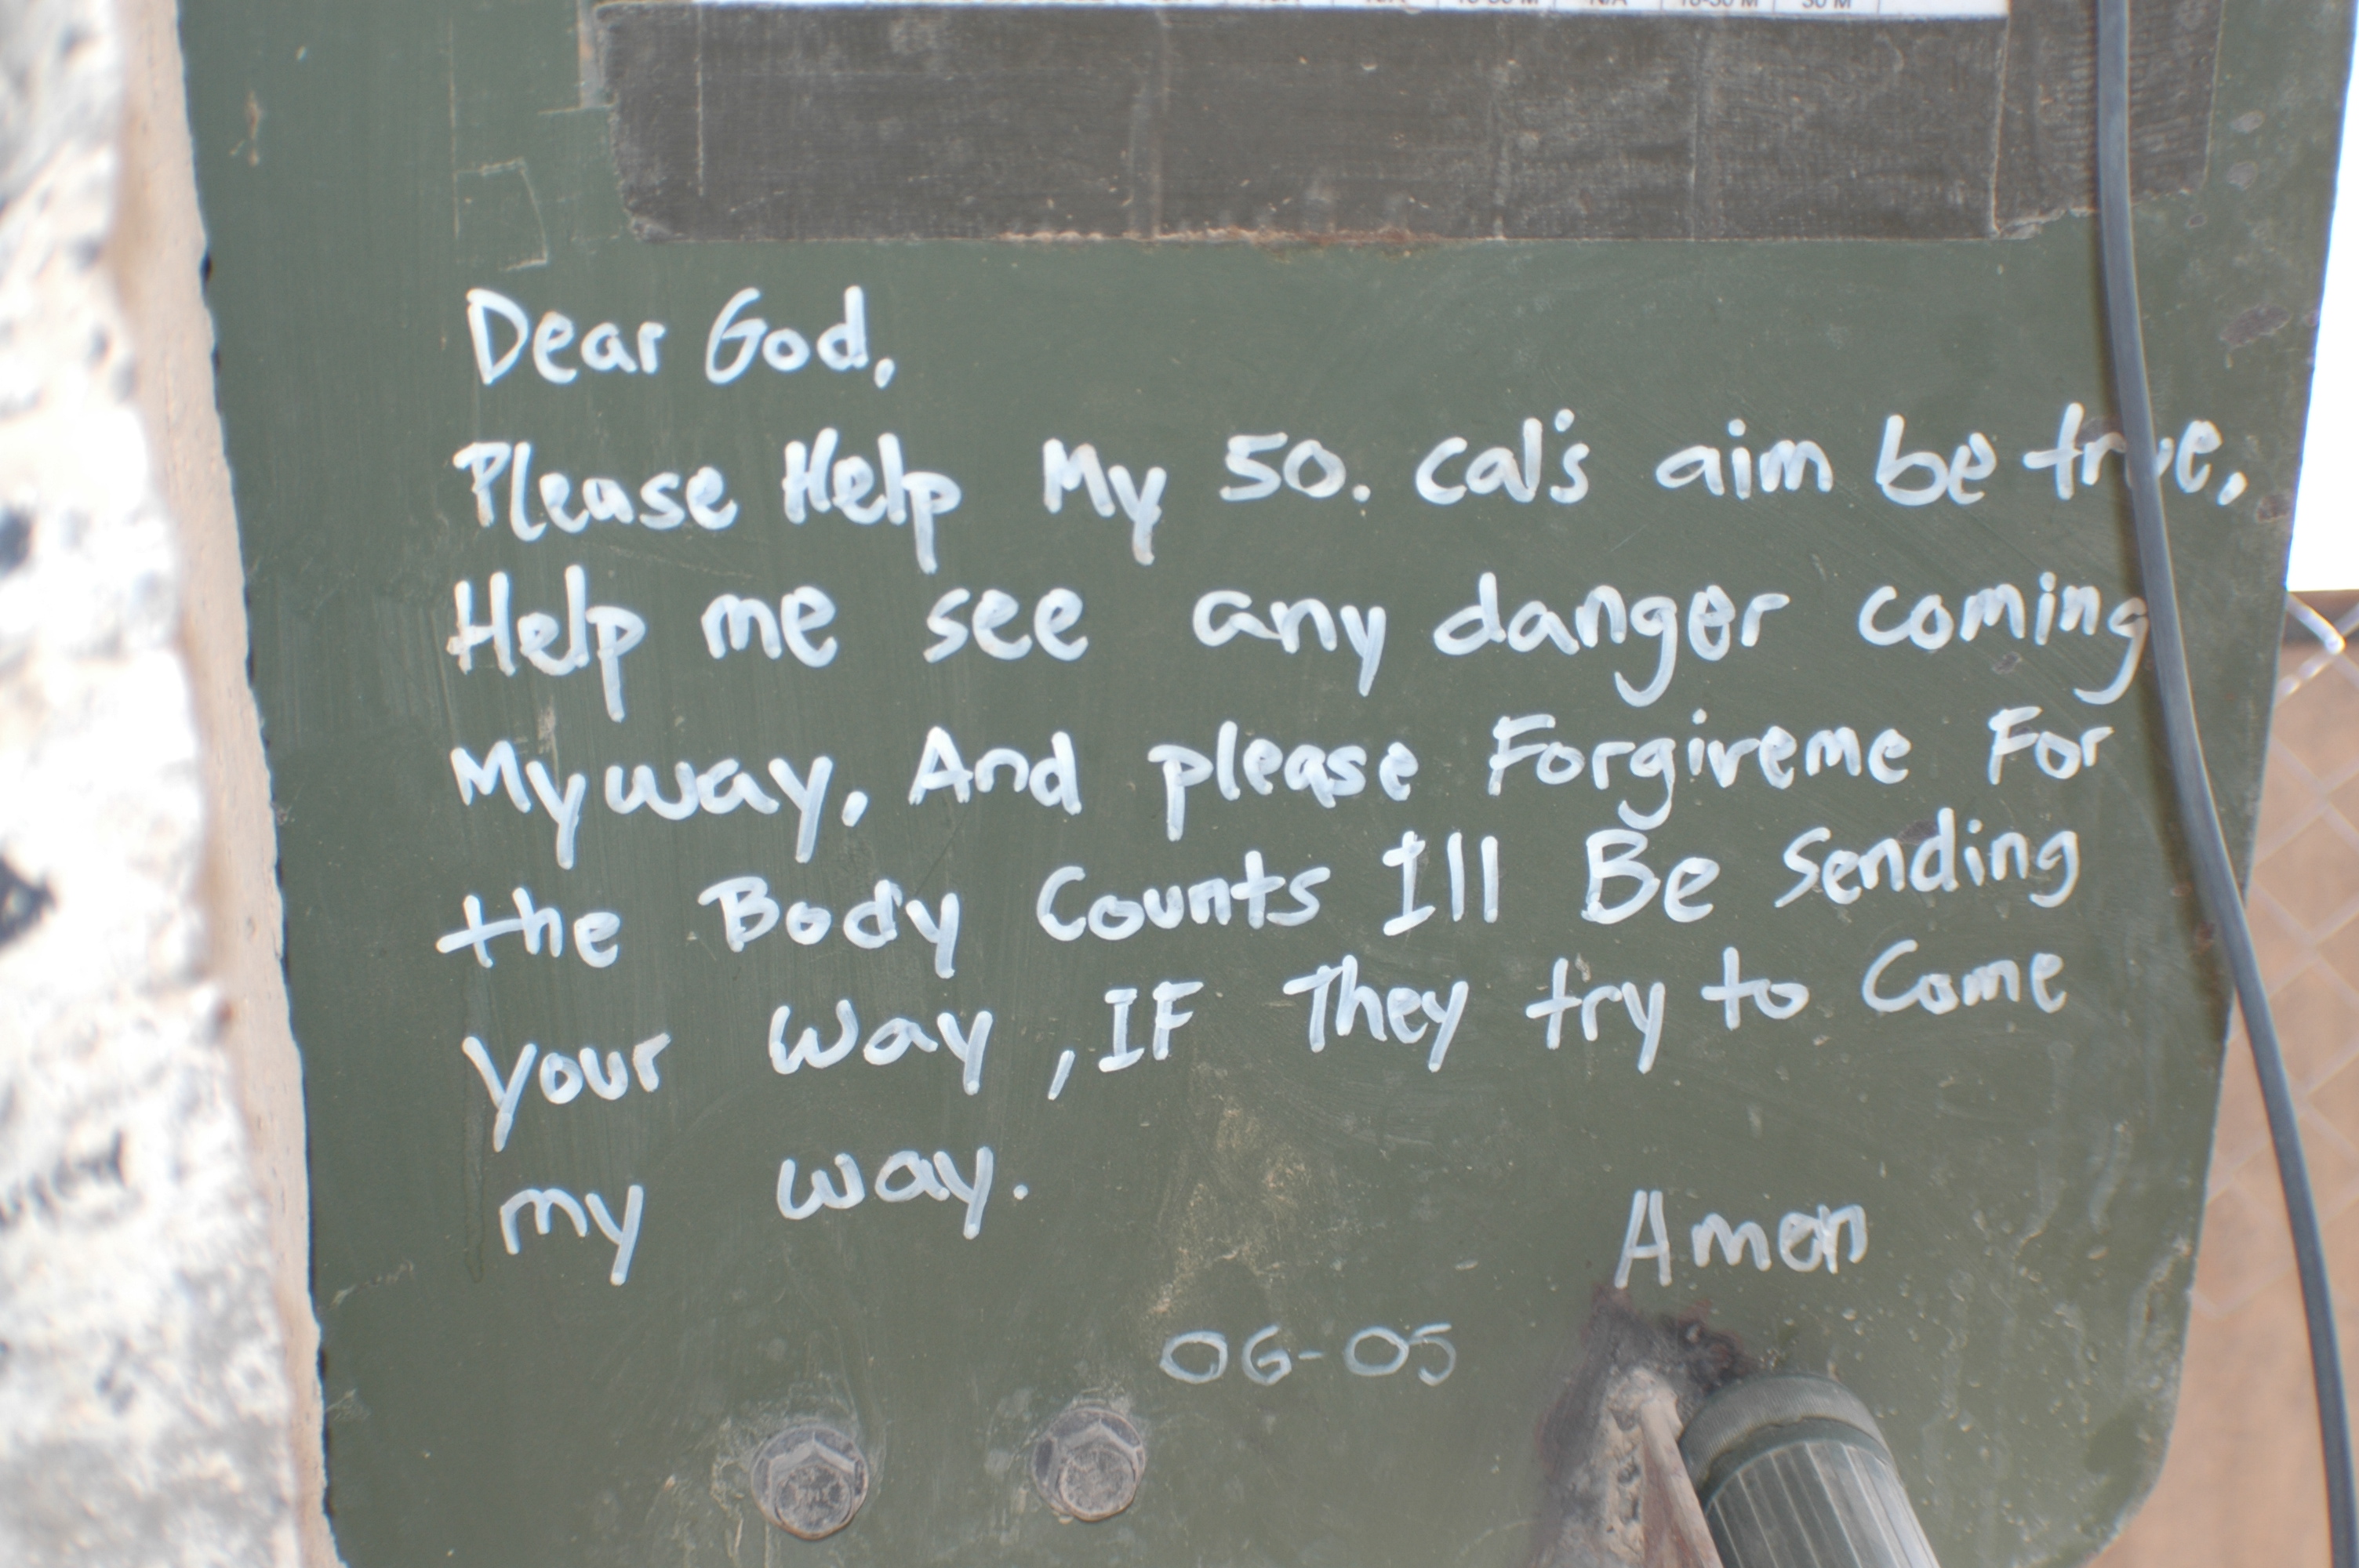 Dear God,
Please Help My 50. cal's aim be true,
Help me see any danger coming
My way, And please Forgive me For
the Body Counts I'll Be Sending
your way, IF They try to Come
my way.
Amen
06-05